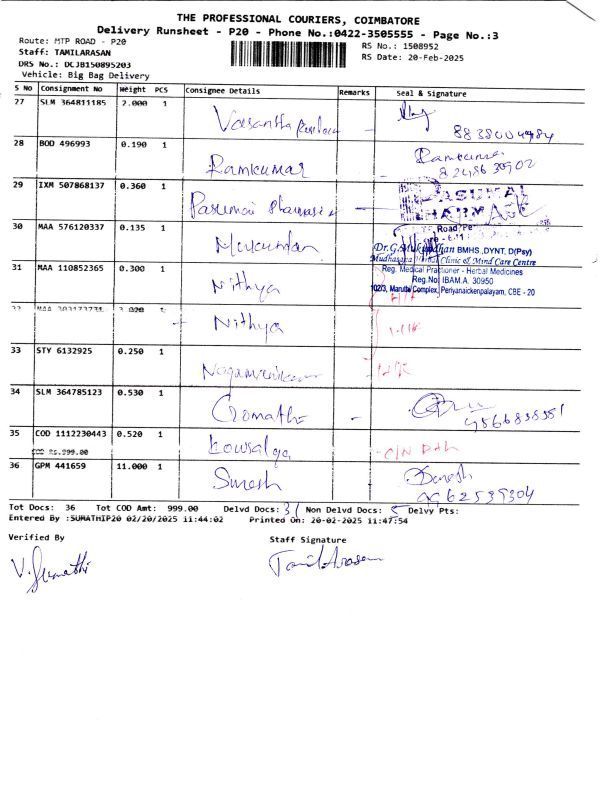 THE PROFESSIONAL COURIERS, COIMBATORE
Delivery Runsheet - P20 - Phone No.:0422-3505555 - Page No.:3
Route: MTP ROAD - P20
RS No.: 1508952
Staff: TAMILARASAN
RS Date: 20-Feb-2025
DRS No.: DCJB150895203
Vehicle: Big Bag Delivery
S No Consignment No Weight PCS Consignee Details Remarks Seal & Signature
27 SLM 364811185 2.000 1 Vasantha
28 BOD 496993 0.190 1 Ramkumar Ramkumar
29 IXM 507868137 0.360 1 Pasumai
PASUMAI
PHARMA
30 MAA 576120337 0.135 1 Mukundan
Dr.G.Mukundhan BMHS ,DYNT, D(Psy)
Mudhasara Herbal Clinic & Mind Care Centre
31 MAA 110852365 0.300 1 Nithya
Reg. Medical Practioner - Herbal Medicines
Reg.No: IBAM.A. 30950
102/3, Marutha Complex, Periyanaickenpalayam, CBE - 20
32 MAA 303173731 3.020 1 Nithya
33 STY 6132925 0.250 1
34 SLM 364785123 0.530 1 Gomathi
9566838551
35 COD 1112230443 0.520 1 Kowsalya
COD Rs.999.00
36 GPM 441659 11.000 1 Suresh
Tot Docs: 36 Tot COD Amt: 999.00 Delvd Docs: 31 Non Delvd Docs: 5 Delvy Pts:
Entered By :SUMATHIP20 02/20/2025 11:44:02 Printed On: 20-02-2025 11:47:54
Verified By Staff Signature
V. Sumathi Tamilarasan